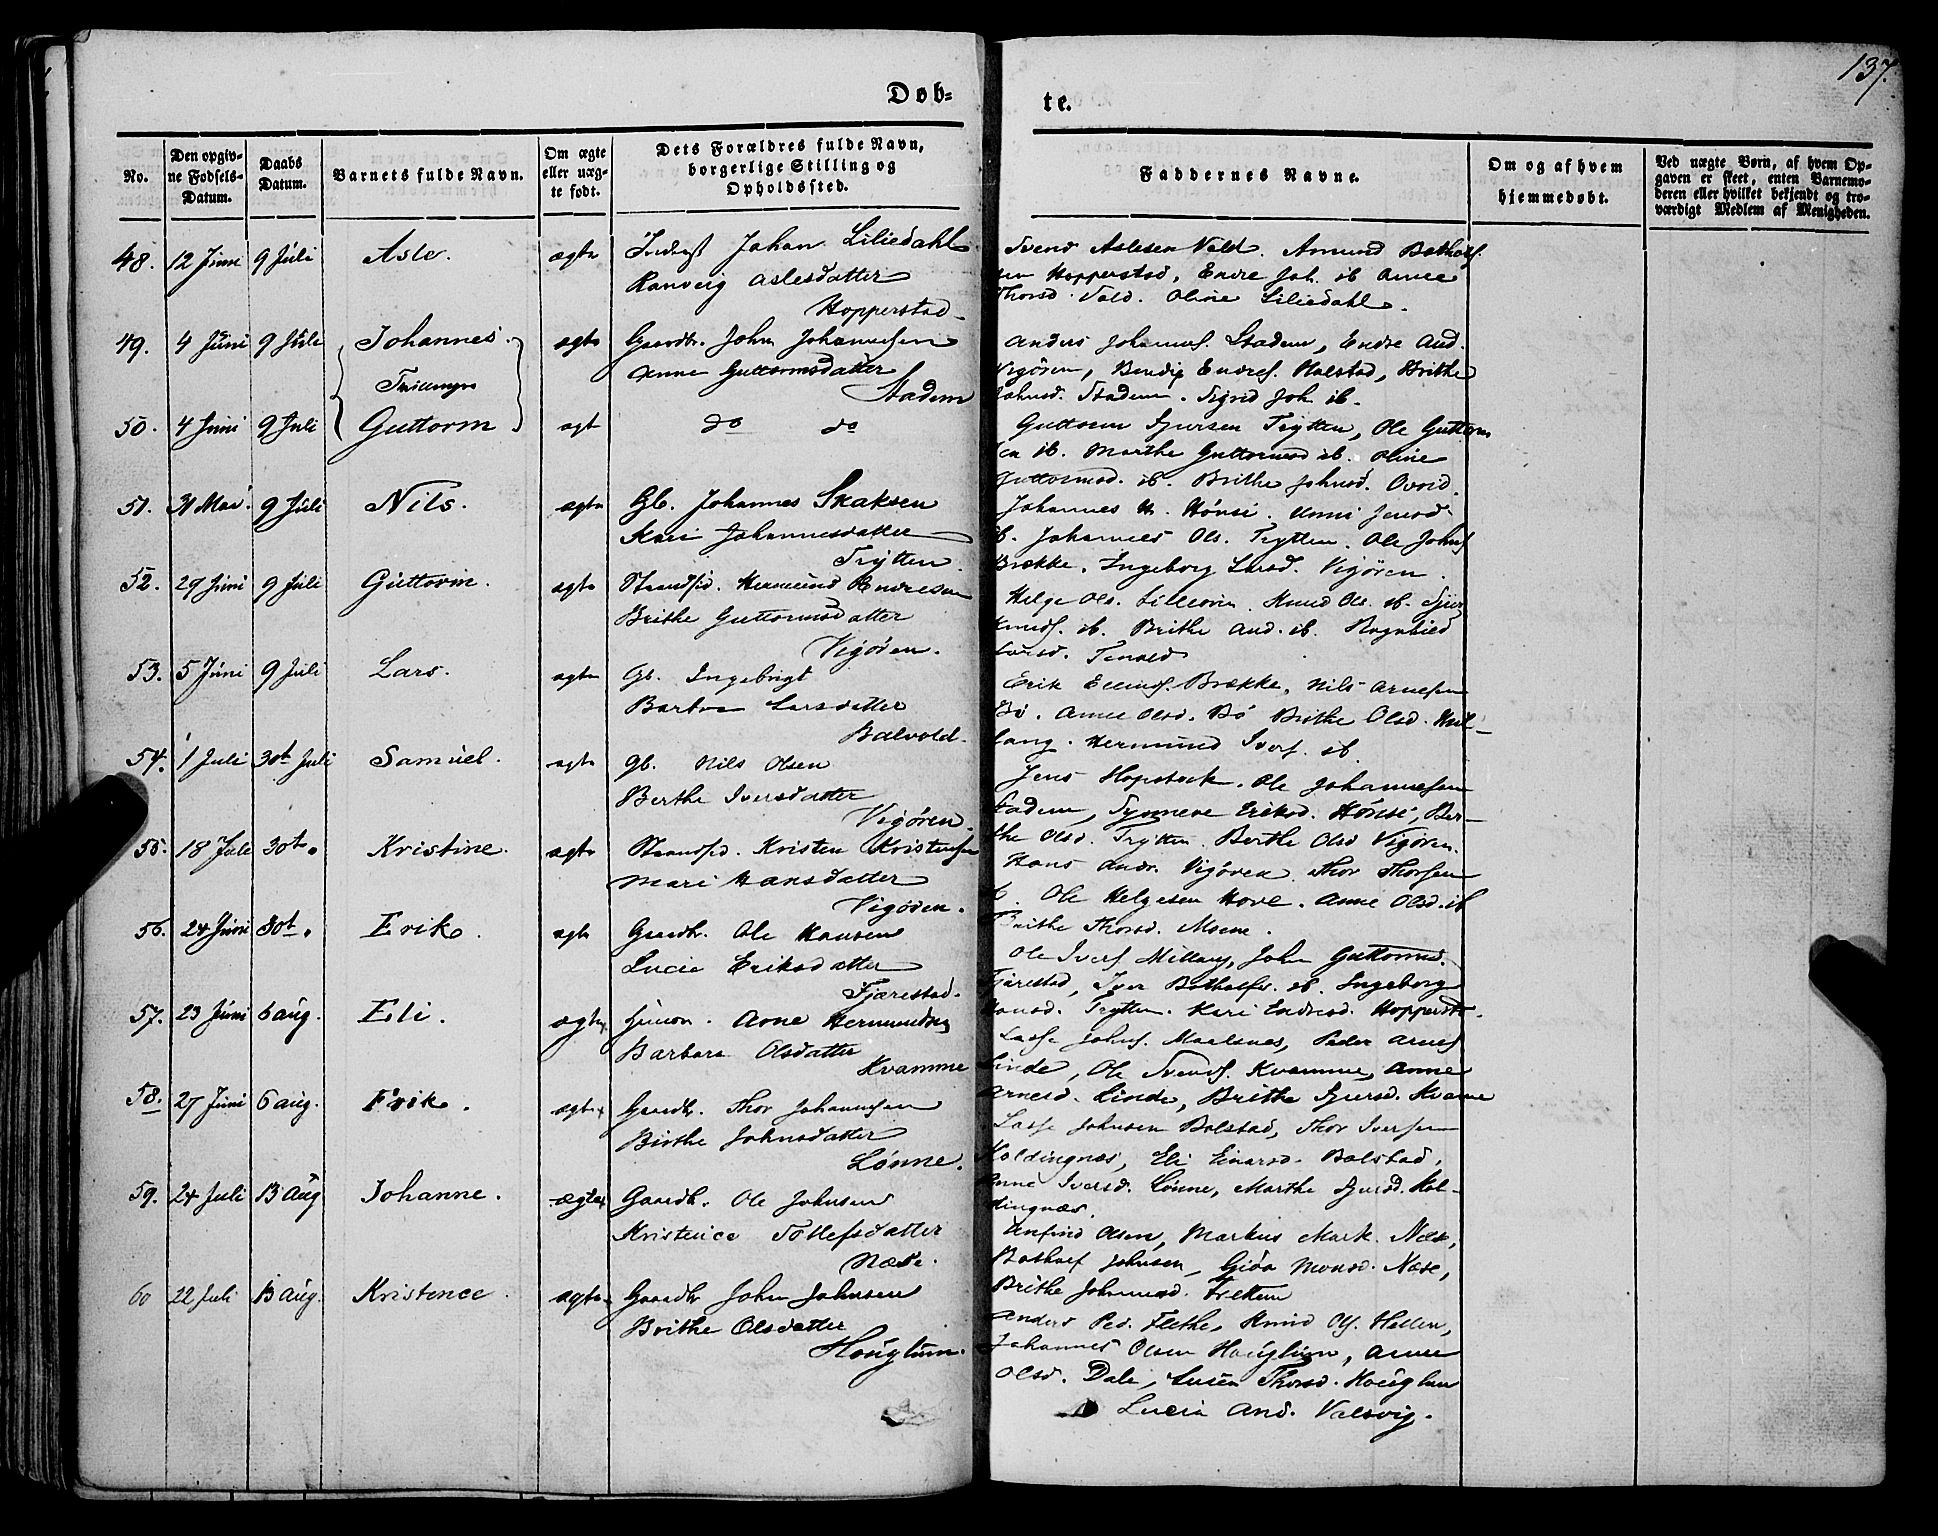 137.
Døb-
te.
No.
Den opgiv-
ne Fødsels-
Datum.
Daabs
Datum.
Barnets fulde Navn.
Om ægte
eller uæg-
te født.
Dets Forældres fulde Navn,
borgerlige Stilling og
Opholdssted.
Faddernes Navne.
Om og af hvem
hjemmedøbt.
Ved uægte Børn, af hvem Op-
gaven er skeet, enten Barnemo-
deren eller hvilket bekjendt og tro-
værdigt Medlem af Menigheden.
48. 12 Juni 9 Juli Asle. ægte Johan Liliedahl
Ranveig Aslesdatter
Hopperstad
Svend Aslesen Vold. Amund Botholf-
sen Hopperstad, Endre Joh. ib Anne
Thorsd. Vold. Oline Liliedahl.
49. 4 Juni 9 Juli Johannes. ægte Gaardbr. John Johannesen
Anne Guttormsdatter
Stadem
Tvillinger
Anders Johannes. Stadem, Endre And.
Vigören, Bendix Endres. Halstad, Brithe
Johnsd. Stadem. Sigrid Joh. ib.
50. 4 Juni 9 Juli Guttorm ægt do do
Guttorm Sjursen Trytten, Ole Guttorm
sen ib. Marthe Guttormsd ib. Oline
Guttormsd. ib. Brithe Johnsd.
51. 31 Mai. 9 Juli Nils. ægte Gb. Johannes Isaksen
Kari Johannesdatter
Trytten.
Johannes H. Hönsi. Anni Jensd.
ib. Johannes Ols. Trytten. Ole Johns
Brække. Ingeborg Larsd. Vigören.
52. 29 Juni 9 Juli Guttorm. ægte Strandsid. Hermund Endresen
Brithe Guttormsdatter
Vigören.
Helge Ols. Knud Ols. ib. Sjur
Knuds. ib. Brithe And. ib. Ragnhild
Larsd.
53. 5 Juni 9 Juli Lars. ægte Gb. Ingebrigt
Barbra Larsdatter
Balvold.
Erik Ellings. Brække. Nils Arnesen
Bö. Anne Olsd. Bö Brithe Olsd.
Hermund Ivers. ib
54. 1 Juli 30te Juli Samuel. ægte Gb. Nils Olsen
Berthe Iversdatter
Vigören.
Jens Hopstock. Ole Johannesen
Stadem, Synneve Eriksd. Hönsi, Ber-
the Olsd. Trytten. Berthe Olsd Vigören.
55. 18 Juli 30te. Kristine. ægte Strandsid. Kristen Kristensen
Mari Hansdatter
Vigören.
Hans Andr. Vigören. Thor Thorsen
ib. Ole Helgesen Hove. Anne Olsd. ib
Brithe Thorsd. Moene.
56. 24 Juni 30te. Erik. ægte Gaardbr. Ole Hansen
Lucie Eriksdatter
Fjærestad.
Ole Ivers John Guttormsd.
Fjærestad, Iver Botholfs. ib. Ingeborg
Hansd. Trytten. Kari Endresd. Hopperst.
57. 23 Juni 6 Aug. Eli. ægte Arne Hermundsen
Barbara Olsdatter
Kvamme
Lasse Johns. Maalsnes, Peder Arnes
Linde, Ole Svends. Kvamme, Anne
Arnesd. Linde, Brithe Sjursd. Kvamme
58. 27 Juni 6 Aug. Erik. ægte Gaardbr. Thor Johannesen
Brithe Johnsdatter
Lönne.
Lasse Johnsen Bolstad, Thor Iversen
Holdingnæs, Eli Einarsd. Bolstad,
Anne Iversd. Lönne, Marthe Sjursd. Hol-
dingnæs.
59. 24 Juli 13 Aug Johanne. ægte Gaardbr. Ole Johnsen
Kristence Tollefsdatter
Næse.
Anfind Olsen, Markus Mark. Næse,
Botholf Johnsen, Gjöa Monsd. Næse,
Brithe Johannesd.
60 22 Juli 13 Aug. Kristence. ægte Gaardbr John Johnsen
Brithe Olsdatter
Houglum.
Anders Ped. Flethe, Knud Ols. Hellen,
Johannes Olsen Houglum, Anne
Olsd. Dale, Thorsd. Houglum
Lucia And. Valsvig.